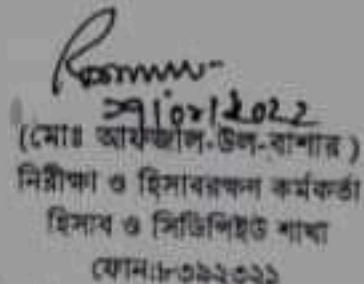 ২৭/০২/2022
(মোঃ আফজাল-উল-বাশার)
নিরীক্ষা ও হিসাবরক্ষন কর্মকর্তা
হিসাব ও সিডিপিইউ শাখা
ফোন:৮৩৯২৩২১